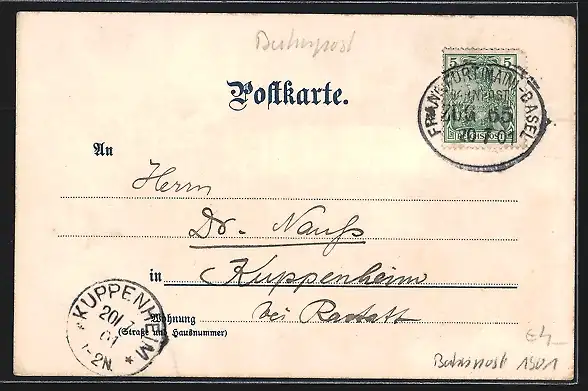 Bahnpost
Postkarte.
5 5
REICHSPOST
FRANKFURT (MAIN)-BASEL
BAHNPOST
ZUG 65
20 7 01
An
Herrn
Dr. Nauß
in Kuppenheim
bei Rastatt
Wohnung
(Straße und Hausnummer)
*KUPPENHEIM*
20/
01
1-2N.
Bahnpost 1901